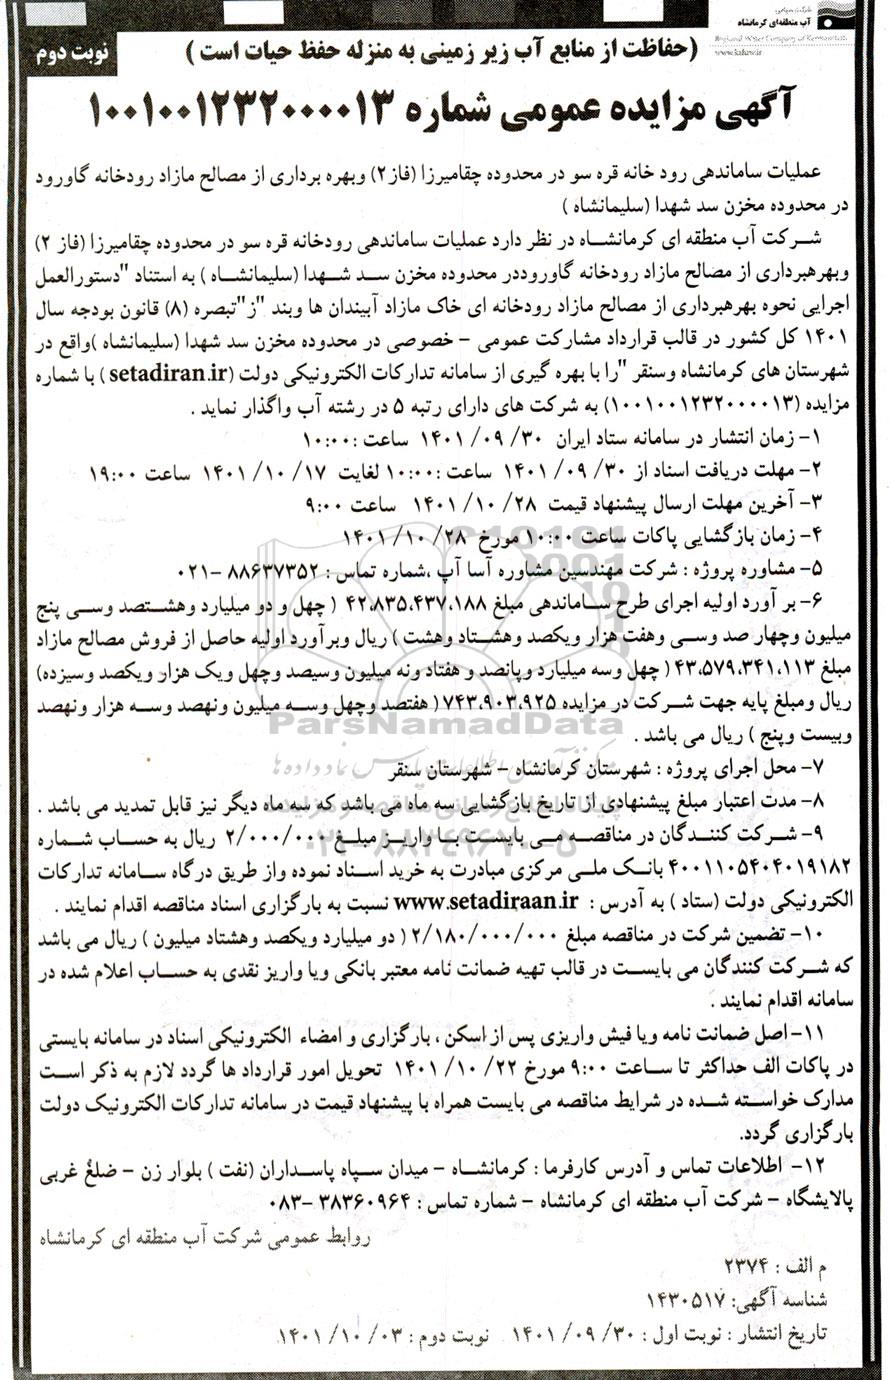 شرکت سهامی
آب منطقه‌ای کرمانشاه
Regional Water Company of Kermanshah
www.kshrw.ir
نوبت دوم
(حفاظت از منابع آب زیر زمینی به منزله حفظ حیات است )
آگهی مزایده عمومی شماره ۱۰۰۱۰۰۱۲۳۲۰۰۰۰۱۳
عملیات ساماندهی رود خانه قره سو در محدوده چقامیرزا (فاز۲) وبهره برداری از مصالح مازاد رودخانه گاورود
در محدوده مخزن سد شهدا (سلیمانشاه )
شرکت آب منطقه ای کرمانشاه در نظر دارد عملیات ساماندهی رودخانه قره سو در محدوده چقامیرزا (فاز ۲)
وبهرهبرداری از مصالح مازاد رودخانه گاوروددر محدوده مخزن سد شهدا (سلیمانشاه ) به استناد "دستورالعمل
اجرایی نحوه بهرهبرداری از مصالح مازاد رودخانه ای خاک مازاد آببندان ها وبند "ز"تبصره (۸) قانون بودجه سال
۱۴۰۱ کل کشور در قالب قرارداد مشارکت عمومی – خصوصی در محدوده مخزن سد شهدا (سلیمانشاه )واقع در
شهرستان های کرمانشاه وسنقر "را با بهره گیری از سامانه تدارکات الکترونیکی دولت (setadiran.ir ) با شماره
مزایده (۱۰۰۱۰۰۱۲۳۲۰۰۰۰۱۳) به شرکت های دارای رتبه ۵ در رشته آب واگذار نماید .
۱– زمان انتشار در سامانه ستاد ایران ۳۰ /۰۹ /۱۴۰۱ ساعت :۱۰:۰۰
۲– مهلت دریافت اسناد از ۳۰ /۰۹ /۱۴۰۱ ساعت :۱۰:۰۰ لغایت ۱۷ /۱۰ /۱۴۰۱ ساعت ۱۹:۰۰
۳– آخرین مهلت ارسال پیشنهاد قیمت ۲۸ /۱۰ /۱۴۰۱ ساعت ۹:۰۰
۴– زمان بازگشایی پاکات ساعت ۱۰:۰۰ مورخ ۲۸ /۱۰ /۱۴۰۱
۵– مشاوره پروژه : شرکت مهندسین مشاوره آسا آپ ،شماره تماس : ۸۸۶۳۷۳۵۲ –۰۲۱
۶– بر آورد اولیه اجرای طرح ساماندهی مبلغ ۴۲،۸۳۵،۴۳۷،۱۸۸ ( چهل و دو میلیارد وهشتصد وسی پنج
میلیون وچهار صد وسی وهفت هزار ویکصد وهشتاد وهشت ) ریال وبرآورد اولیه حاصل از فروش مصالح مازاد
مبلغ ۴۳،۵۷۹،۳۴۱،۱۱۳ ( چهل وسه میلیارد وپانصد و هفتاد ونه میلیون وسیصد وچهل ویک هزار ویکصد وسیزده)
ریال ومبلغ پایه جهت شرکت در مزایده ۷۴۳،۹۰۳،۹۲۵( هفتصد وچهل وسه میلیون ونهصد وسه هزار ونهصد
وبیست وپنج ) ریال می باشد .
۷– محل اجرای پروژه : شهرستان کرمانشاه – شهرستان سنقر
۸– مدت اعتبار مبلغ پیشنهادی از تاریخ بازگشایی سه ماه می باشد که سه ماه دیگر نیز قابل تمدید می باشد .
۹– شرکت کنندگان در مناقصه می بایست با واریز مبلغ ۲/۰۰۰/۰۰۰ ریال به حساب شماره
۴۰۰۱۱۰۵۴۰۴۰۱۹۱۸۲ بانک ملی مرکزی مبادرت به خرید اسناد نموده واز طریق درگاه سامانه تدارکات
الکترونیکی دولت (ستاد ) به آدرس : www.setadiraan.ir نسبت به بارگزاری اسناد مناقصه اقدام نمایند .
۱۰– تضمین شرکت در مناقصه مبلغ ۲/۱۸۰/۰۰۰/۰۰۰ ( دو میلیارد ویکصد وهشتاد میلیون ) ریال می باشد
که شرکت کنندگان می بایست در قالب تهیه ضمانت نامه معتبر بانکی ویا واریز نقدی به حساب اعلام شده در
سامانه اقدام نمایند .
۱۱–اصل ضمانت نامه ویا فیش واریزی پس از اسکن ، بارگزاری و امضاء الکترونیکی اسناد در سامانه بایستی
در پاکات الف حداکثر تا ساعت ۹:۰۰ مورخ ۲۲ /۱۰ /۱۴۰۱ تحویل امور قرارداد ها گردد لازم به ذکر است
مدارک خواسته شده در شرایط مناقصه می بایست همراه با پیشنهاد قیمت در سامانه تدارکات الکترونیک دولت
بارگزاری گردد.
۱۲– اطلاعات تماس و آدرس کارفرما : کرمانشاه – میدان سپاه پاسداران (نفت ) بلوار زن – ضلع غربی
پالایشگاه – شرکت آب منطقه ای کرمانشاه – شماره تماس : ۳۸۳۶۰۹۶۴ –۰۸۳
روابط عمومی شرکت آب منطقه ای کرمانشاه
م الف : ۲۳۷۴
شناسه آگهی: ۱۴۳۰۵۱۷
تاریخ انتشار : نوبت اول : ۳۰ /۰۹ /۱۴۰۱ نوبت دوم : ۰۳ /۱۰ /۱۴۰۱
ParsNamadData
۰۲۱-۸۸۳۴۹۶۷۰-۵